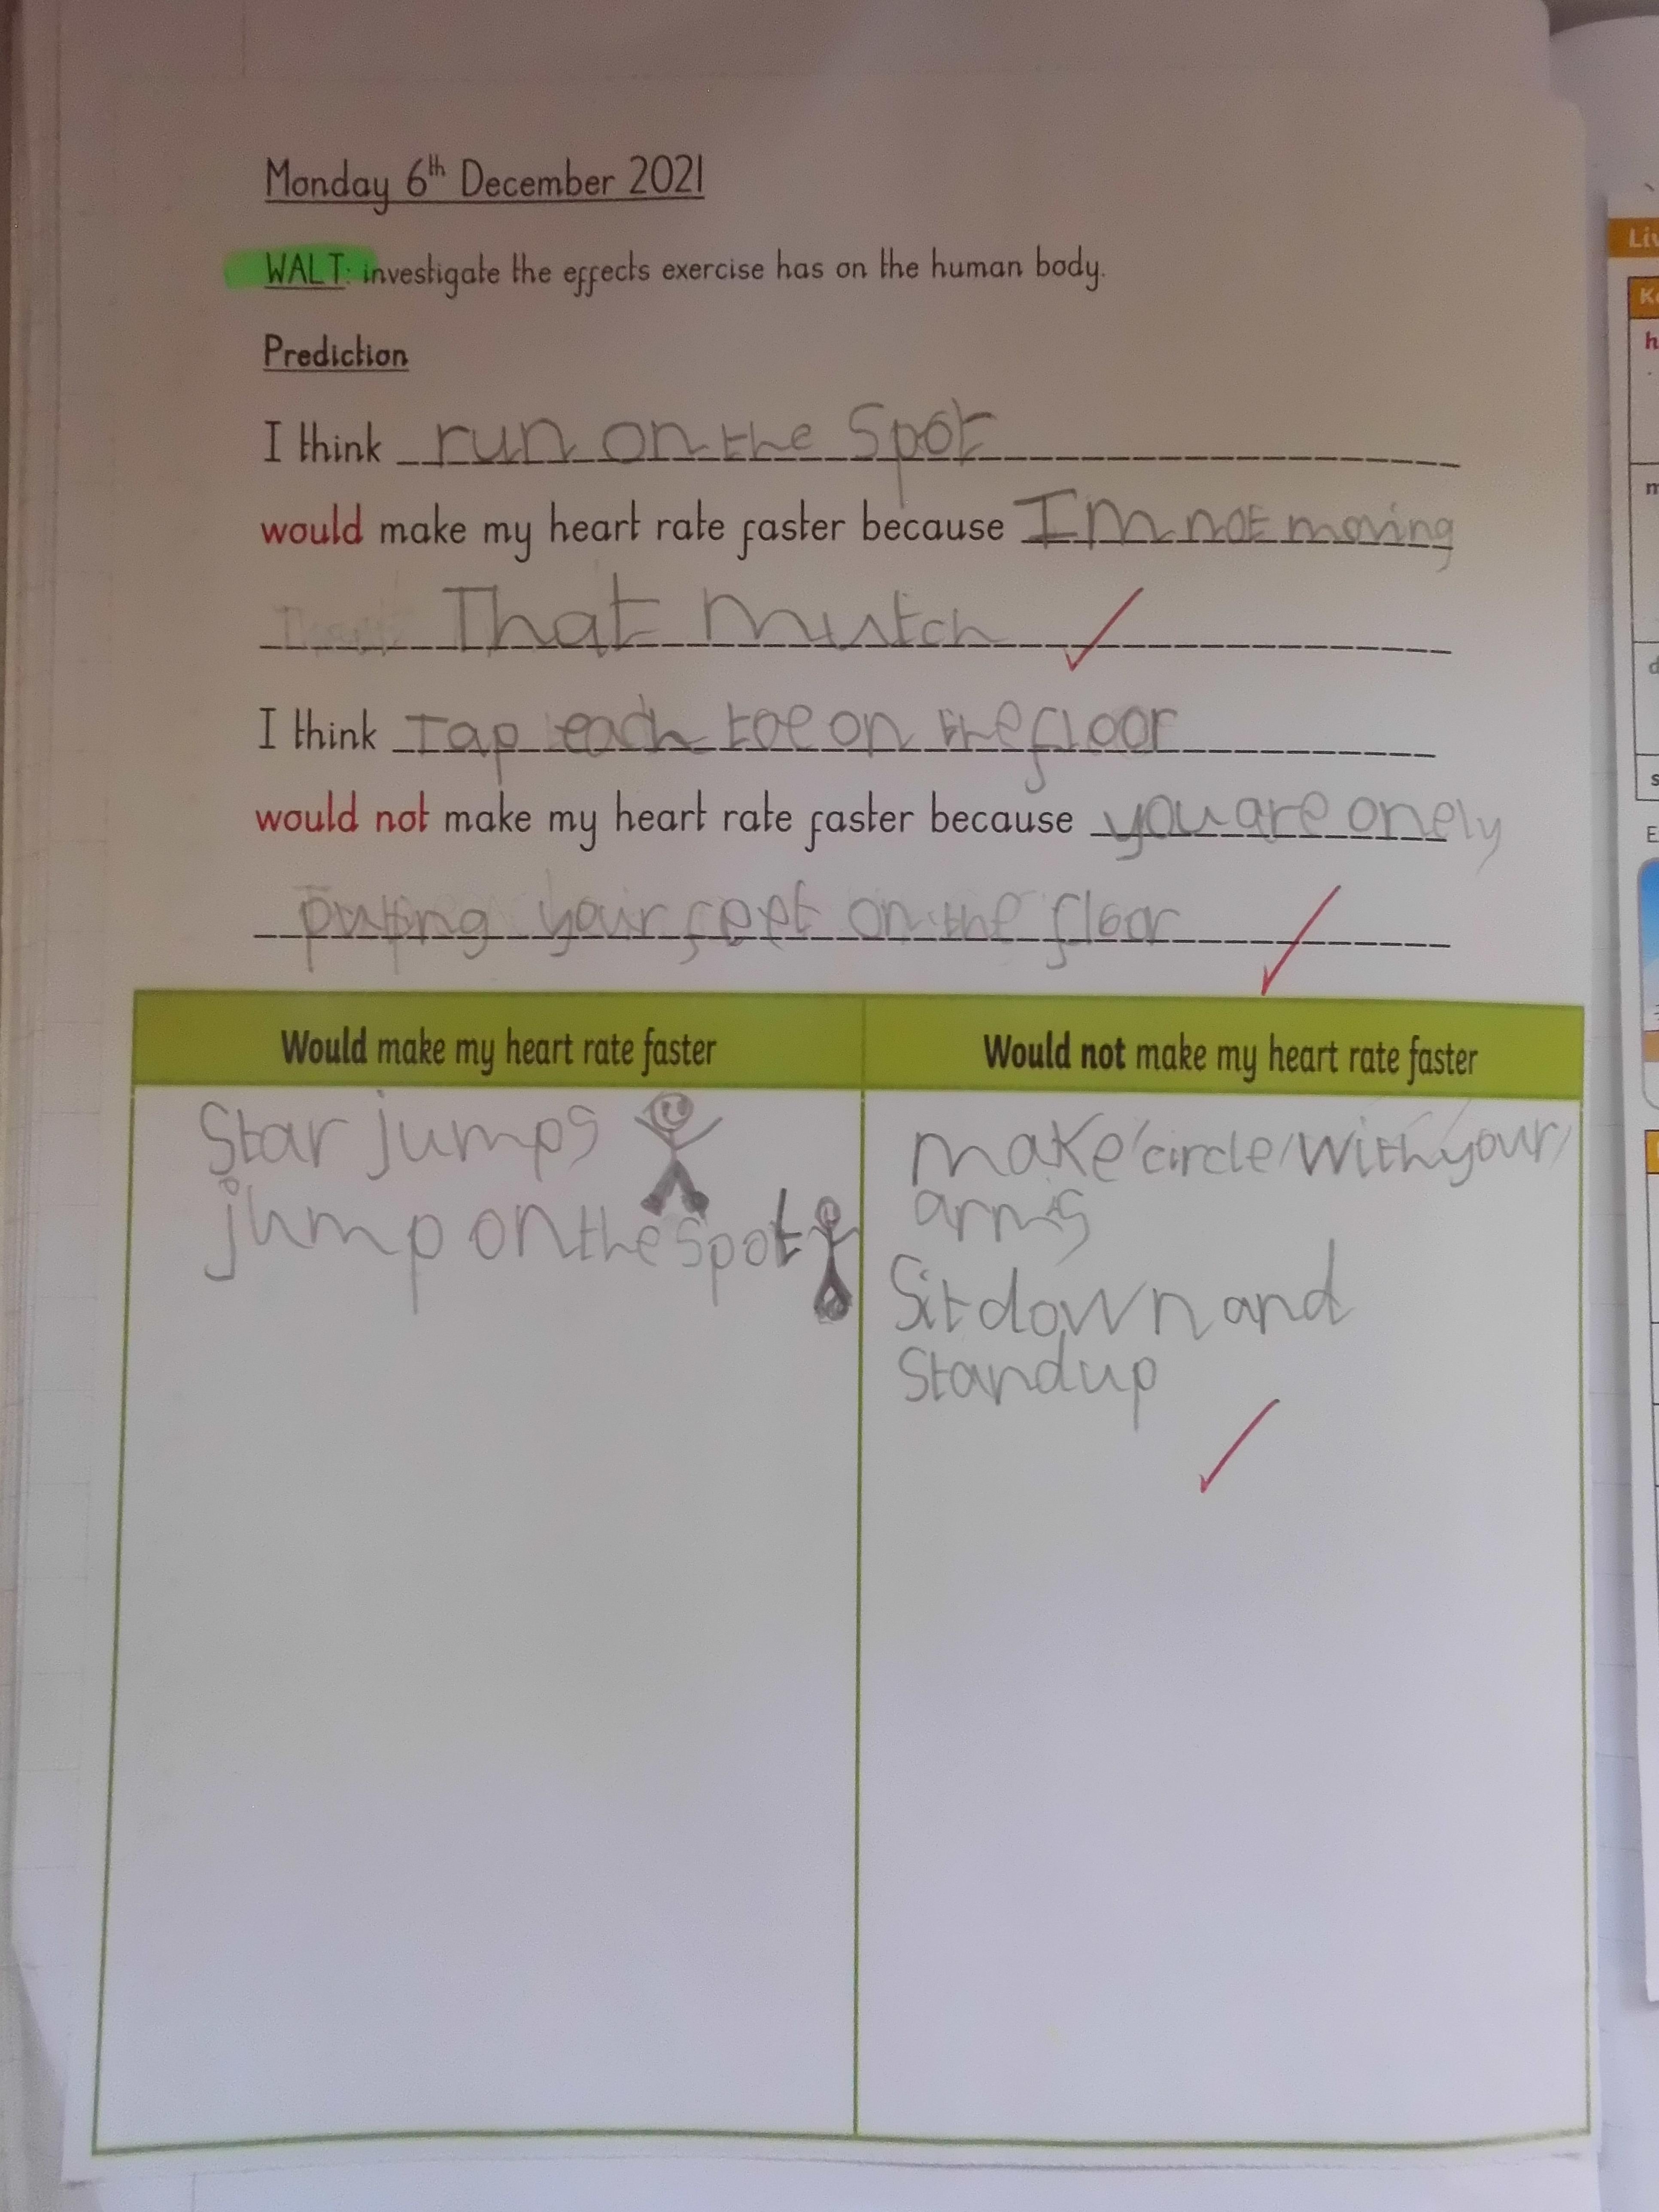 Monday 6th December 2021
WALT: investigate the effects exercise has on the human body.
Prediction
I think run on the Spot
would make my heart rate faster because I'm not moving
That mutch
I think Tap each toe on the floor
would not make my heart rate faster because you are onely
puting your feet on the floor
Would make my heart rate faster
Would not make my heart rate faster
Star jumps
jump on the spot
make/circle/with your/
arms
Sit down and
Stand up
Liv